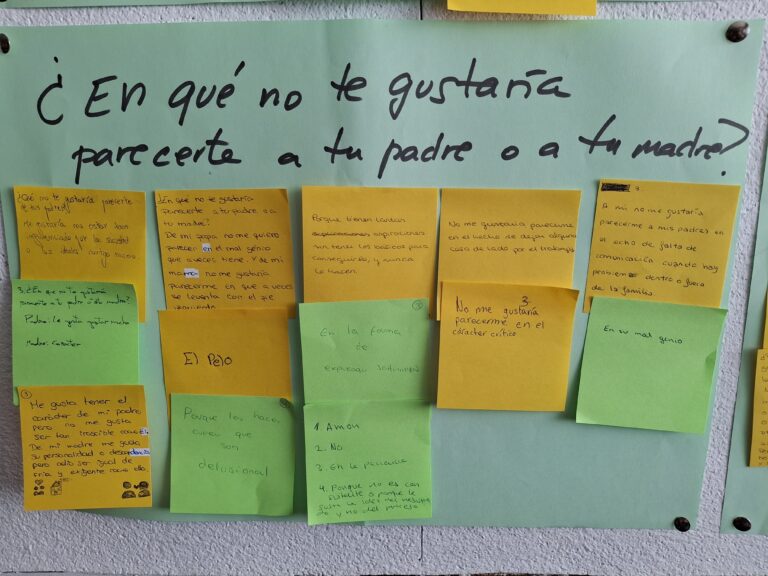 ¿En qué no te gustaría
parecerte a tu padre o a tu madre?
¿Qué no te gustaría
Me gustaría no estar tan
influenciado por la sociedad
¿En qué no te gustaría
parecerte a tu padre o a
tu madre?
De mi papá no me quiero
parecer en el mal genio
que a veces tiene. Y de mi
mamá no me gustaría
parecerme en que a veces
se levanta con el pie
Porque tienen tantas
aspiraciones
sin tener los básicos para
conseguirlo, y nunca
lo hacen.
No me gustaría parecerme
en el hecho de dejar alguna
cosa de lado por el trabajo
3.
A mi no me gustaría
parecerme a mis padres en
el echo de falta de
comunicación cuando hay
problemas dentro o fuera
de la familia.
3. ¿En qué no te gustaría
a tu padre o a tu madre?
Padre: Le gusta gritar mucho
Madre: Carácter
El Pelo
En la forma
de
expresar sentimientos
3.
No me gustaría
parecerme en el
carácter crítico
En su mal genio
Me gusta tener el
carácter de mi padre
pero no me gusta
ser tan irascible como él.
De mi madre me gusta
su personalidad
pero odio ser igual de
fría y exigente como ella
Porque los hace
creer que
son
delusional
1. Amor
2. No
3. En la paciencia
4. Porque no es con
gusta la idea del
do y no del proceso